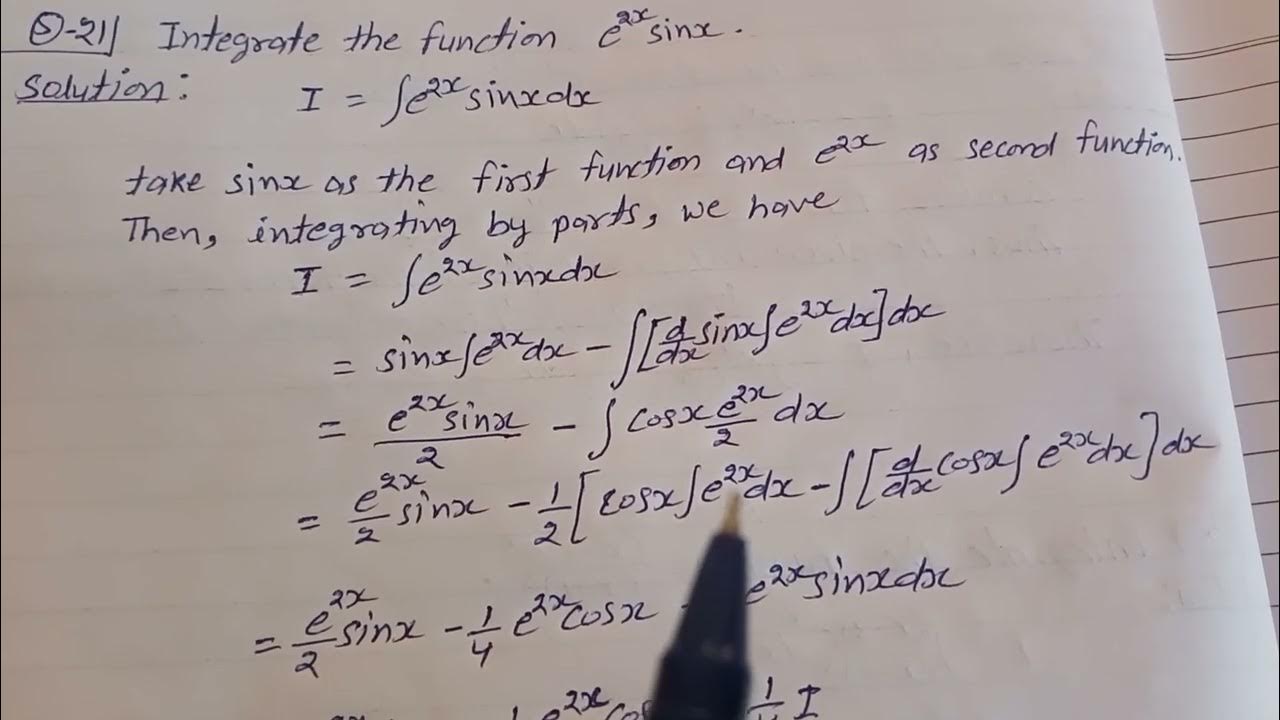 Q-21] Integrate the function e^{2x} sinx.
Solution: I = ∫e^{2x} sinx dx
take sinx as the first function and e^{2x} as second function.
Then, integrating by parts, we have
I = ∫e^{2x} sinx dx
= sinx∫e^{2x}dx - ∫[d/dx sinx∫e^{2x}dx]dx
= e^{2x} sinx/2 - ∫ cosx e^{2x}/2 dx
= e^{2x}/2 sinx - 1/2 [cosx∫e^{2x}dx - ∫[d/dx cosx∫ e^{2x}dx]dx
= e^{2x}/2 sinx - 1/4 e^{2x}cosx e^{2x} sinx dx
e^{2x} I